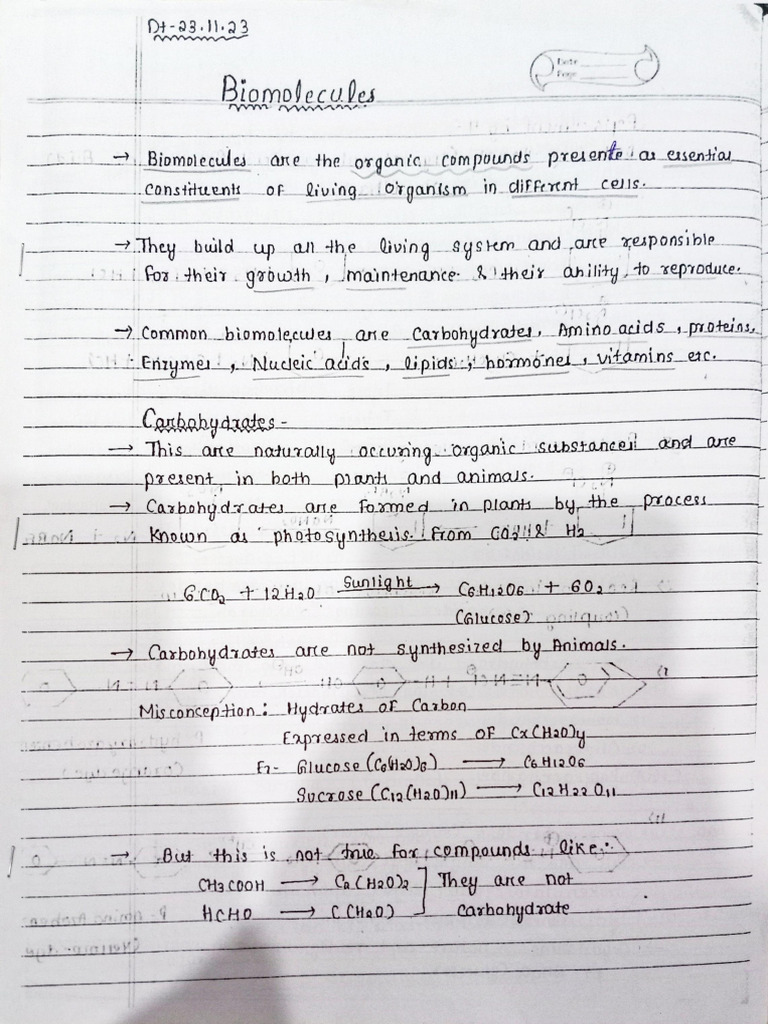 Dt-23.11.23
Date
Page
Biomolecules
→ Biomolecules are the organic compounds presente as essential
constituents of living organism in different cells.
→ They build up all the living system and are responsible
for their growth, maintenance & their ability to reproduce.
→ Common biomolecules are Carbohydrates, Amino acids, proteins,
Enzymes, Nucleic acids, lipids, hormones, vitamins etc.
Carbohydrates -
→ This are naturally occuring organic substances and are
present in both plants and animals.
→ Carbohydrates are formed in plants by the process
known as photosynthesis from CO2 & H2
6CO2 + 12H2O Sunlight → C6H12O6 + 6O2
(Glucose)
→ Carbohydrates are not synthesized by Animals.
Misconception: Hydrates of Carbon
Expressed in terms of Cx(H2O)y
Ex- Glucose (C6(H2O)6) → C6H12O6
Sucrose (C12(H2O)11) → C12H22O11
→ But this is not true for compounds like:
CH3COOH → C2(H2O)2 ] They are not
HCHO → C(H2O) ] carbohydrate